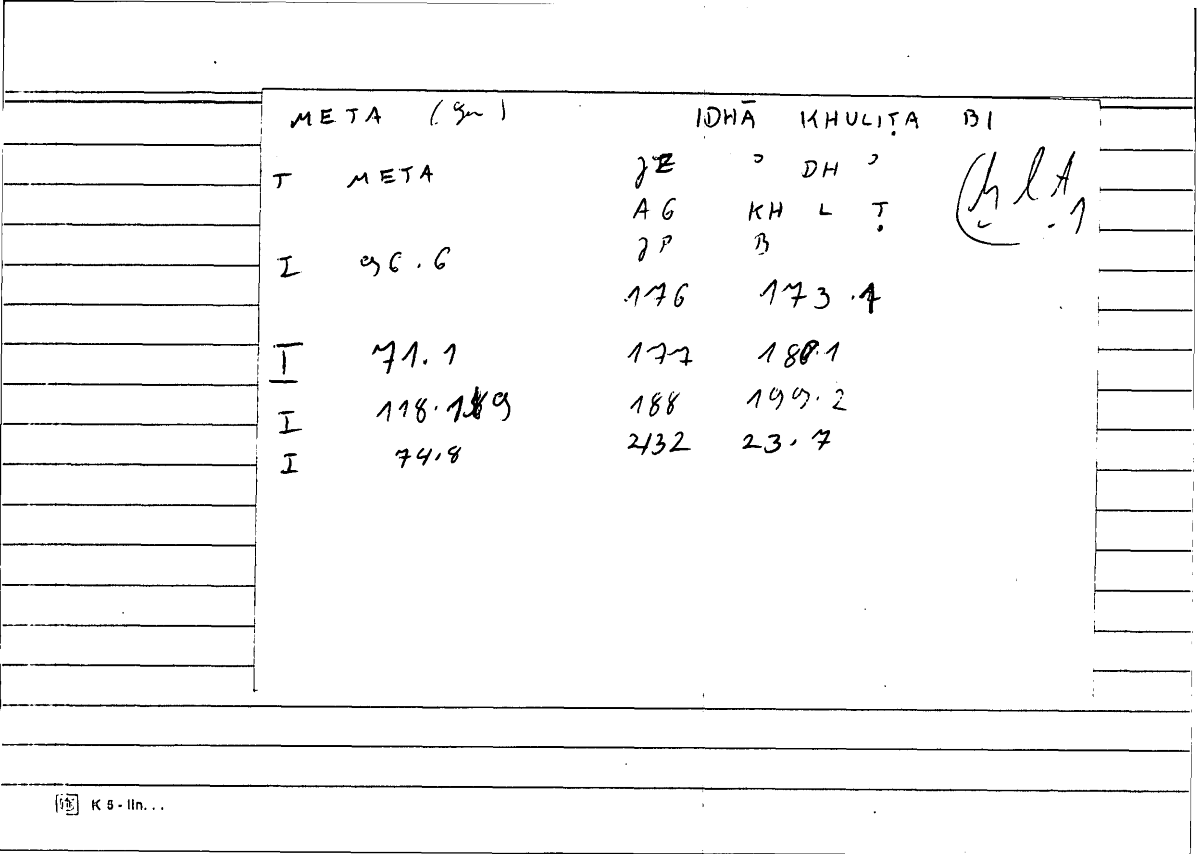 META (gen) IDHĀ KHULIṬA BI
T META JE ʾ DH ʾ
AG KH L Ṭ ḫlṭ.1
JP B
I 96.6
176 173.1
I 71.1 177 180.1
I 118.189 188 199.2
I 74.8 2132 23.7
K 5 - lin...